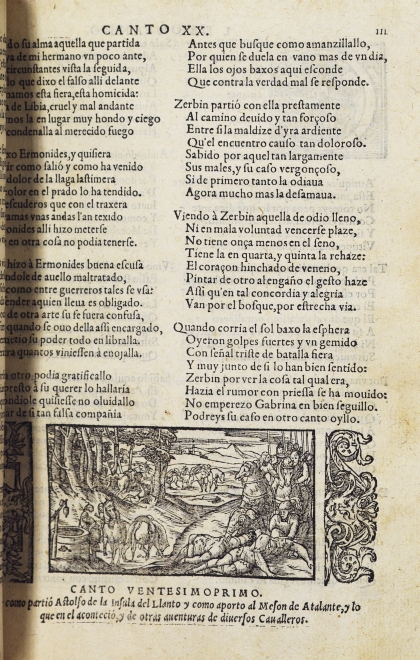 CANTO XX.
111
do su alma aquella que partida
ya de mi hermano vn poco ante,
circunstantes vista la seguida,
lo que dixo el falso alli delante
namos esta fiera, esta homicida:
de Libia, cruel y mal andante
nos la en lugar muy hondo y ciego
condenalla al merecido fuego
xo Ermonides, y quisiera
ir como salió y como ha venido
dolor de la llaga lastimera
color en el prado lo ha tendido.
escuderos que con el traxera
amas vnas andas l'an texido
onides alli hizo meterse
en otra cosa no podia tenerse.
hizo à Ermonides buena escusa
ndole de auello maltratado,
como entre guerreros tales se vsa:
ender aquien lleua es obligado.
de otra arte su fe fuera confusa,
quando se ouo della assi encargado,
metio su poder todo en libralla.
ra quantos viniessen à enojalla.
n otro podia gratificallo
presto à su querer lo hallaria
ondiole quisiesse no oluidallo
nar de si tan falsa compañia
Antes que busque como amanzillallo,
Por quien se duela en vano mas de vn dia,
Ella los ojos baxos aqui esconde
Que contra la verdad mal se responde.
Zerbin partió con ella prestamente
Al camino deuido y tan forçoso
Entre si la maldize d'yra ardiente
Qu'el encuentro causo tan doloroso.
Sabido por aquel tan largamente
Sus males, y su caso vergonçoso,
Si de primero tanto la odiaua
Agora mucho mas la desamaua.
Viendo à Zerbin aquella de odio lleno,
Ni en mala voluntad vencerse plaze,
No tiene onça menos en el seno,
Tiene la en quarta, y quinta la rehaze:
El coraçon hinchado de veneno,
Pintar de otro al engaño el gesto haze
Assi qu'en tal concordia y alegria
Van por el bosque, por estrecha via.
Quando corria el sol baxo la esphera
Oyeron golpes fuertes y vn gemido
Con señal triste de batalla fiera
Y muy junto de si lo han bien sentido:
Zerbin por ver la cosa tal qual era,
Hazia el rumor con priessa se ha mouido:
No emperezo Gabrina en bien seguillo.
Podreys su caso en otro canto oyllo.
CANTO VENTESIMOPRIMO.
como partió Astolfo de la Insula del Llanto y como aporto al Meson de Atalante, y lo
que en el aconteció, y de otras auenturas de diuersos Caualleros.